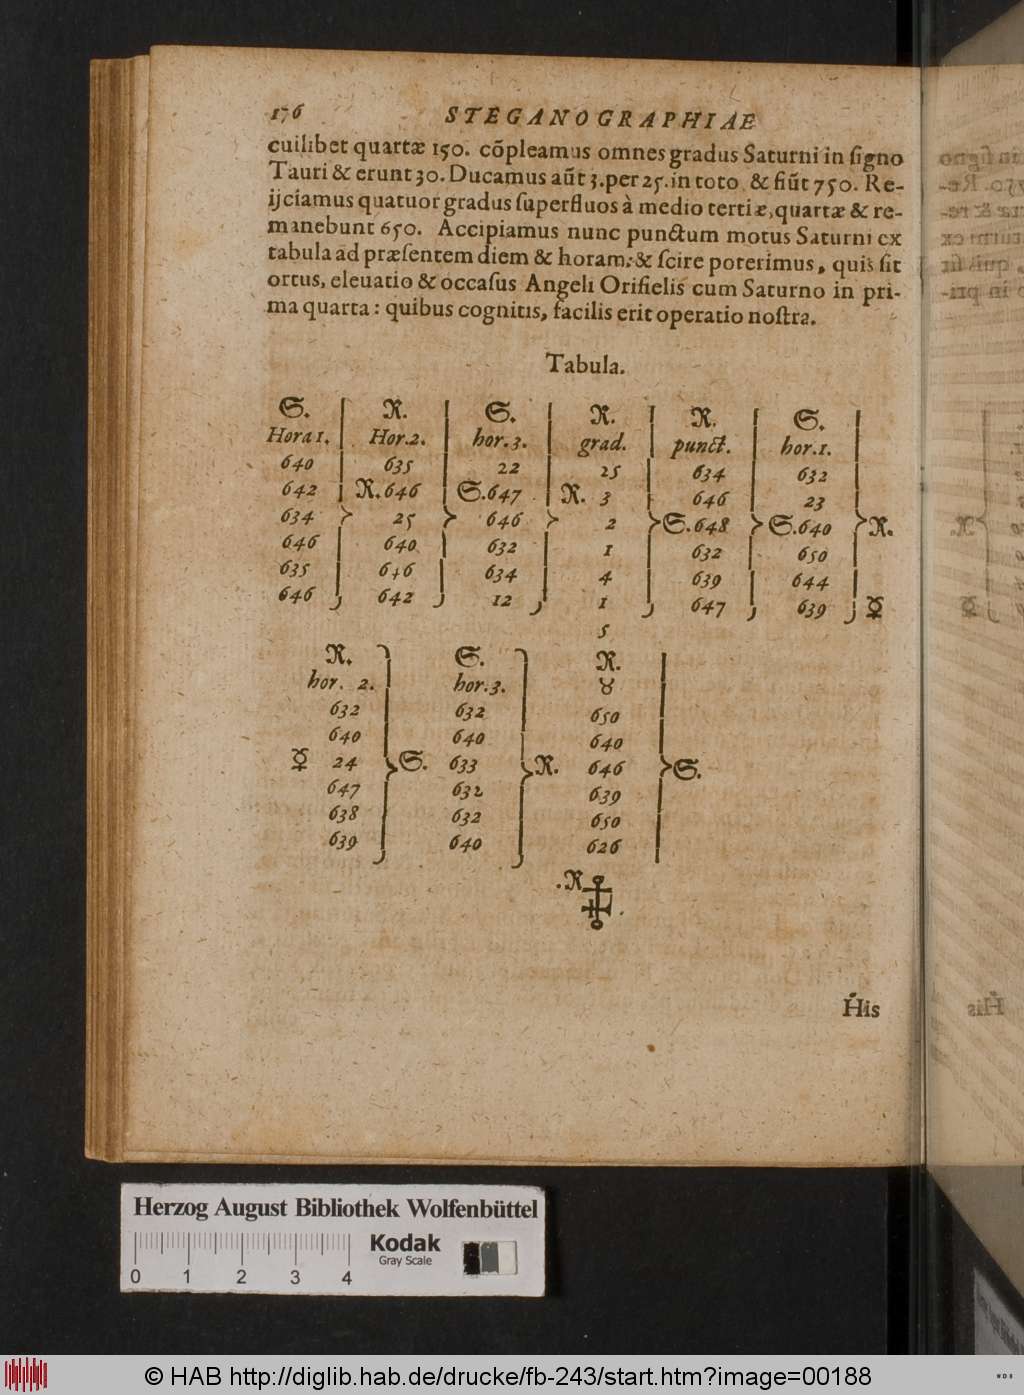 176 STEGANOGRAPHIAE
cuilibet quartæ 150. cõpleamus omnes gradus Saturni in ſigno
Tauri & erunt 30. Ducamus aũt 3. per 25. in toto & fiũt 750. Re-
ijciamus quatuor gradus ſuperfluos à medio tertiæ, quartæ & re-
manebunt 650. Accipiamus nunc punctum motus Saturni ex
tabula ad præſentem diem & horam: & ſcire poterimus, quis ſit
ortus, eleuatio & occaſus Angeli Orifielis cum Saturno in pri-
ma quarta: quibus cognitis, facilis erit operatio noſtra.
Tabula.
S. R. S. R. R. S.
Hora 1. Hor. 2. hor. 3. grad. punct. hor. 1.
640 635 22 25 634 632
642 R. 646 S. 647 R. 3 646 23
634 25 646 2 S. 648 S. 640 R.
646 640 632 1 632 650
635 646 634 4 639 644
646 642 12 1 647 639 ☿
5
R. S. R.
hor. 2. hor. 3. ♉
632 632 650
640 640 640
☿ 24 S. 633 R. 646 S.
647 632 639
638 632 650
639 640 626
.R .
His
Herzog August Bibliothek Wolfenbüttel
Kodak
Gray Scale
0 1 2 3 4
© HAB http://diglib.hab.de/drucke/fb-243/start.htm?image=00188